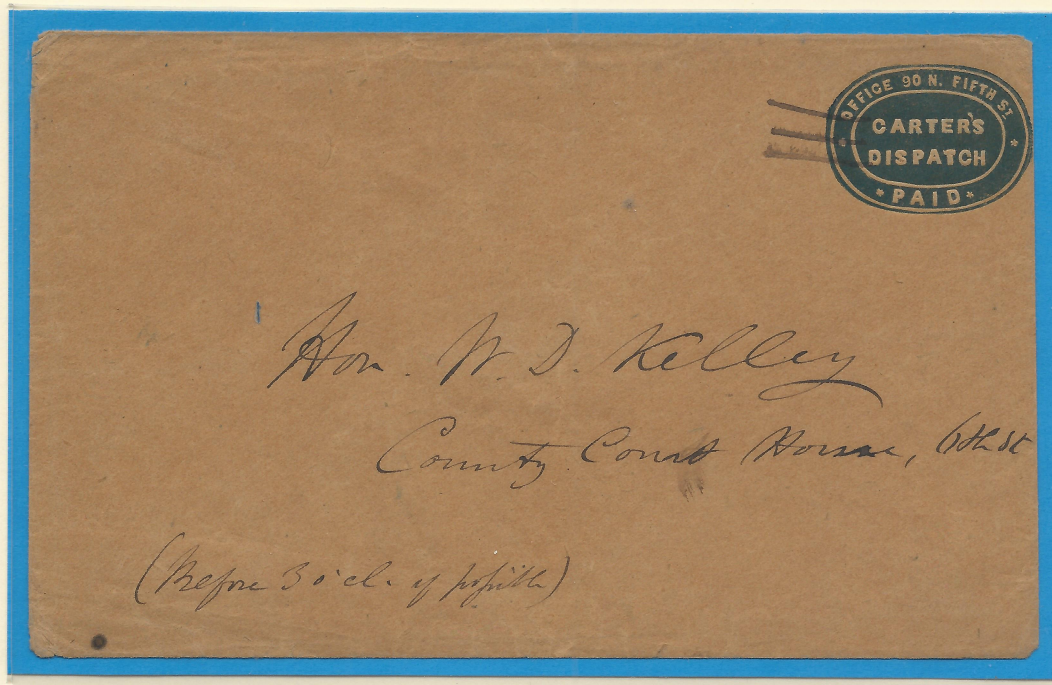 OFFICE 90 N. FIFTH ST
CARTER'S
DISPATCH
* PAID *
Hon. W. D. Kelley
County Court House, 6th St
(Before 3 o'cl. if possible)